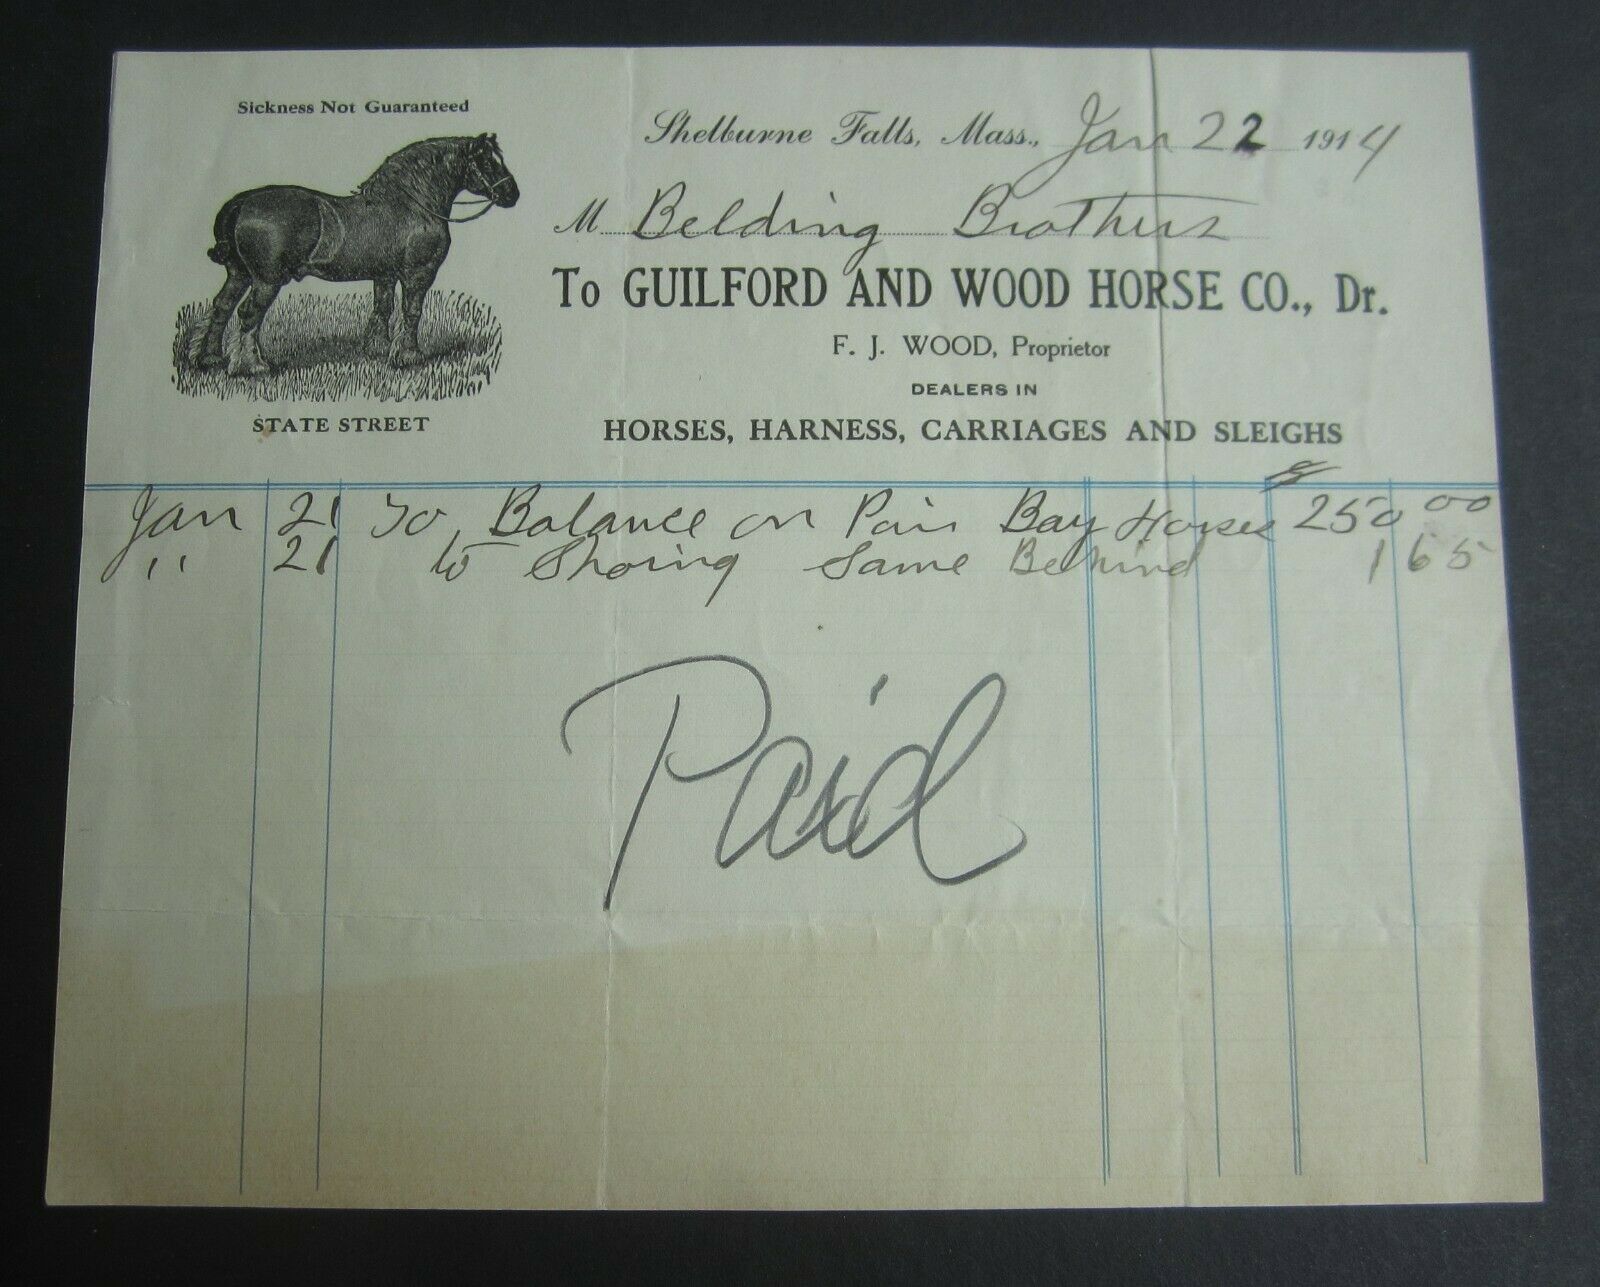 Sickness Not Guaranteed
STATE STREET
Shelburne Falls, Mass., Jan 22 1914
M Belding Brothers
To GUILFORD AND WOOD HORSE CO., Dr.
F. J. WOOD, Proprietor
DEALERS IN
HORSES, HARNESS, CARRIAGES AND SLEIGHS
Jan 21 To Balance on Pair Bay Horses 250 00
" 21 to Shoing Same Behind 1 65
Paid